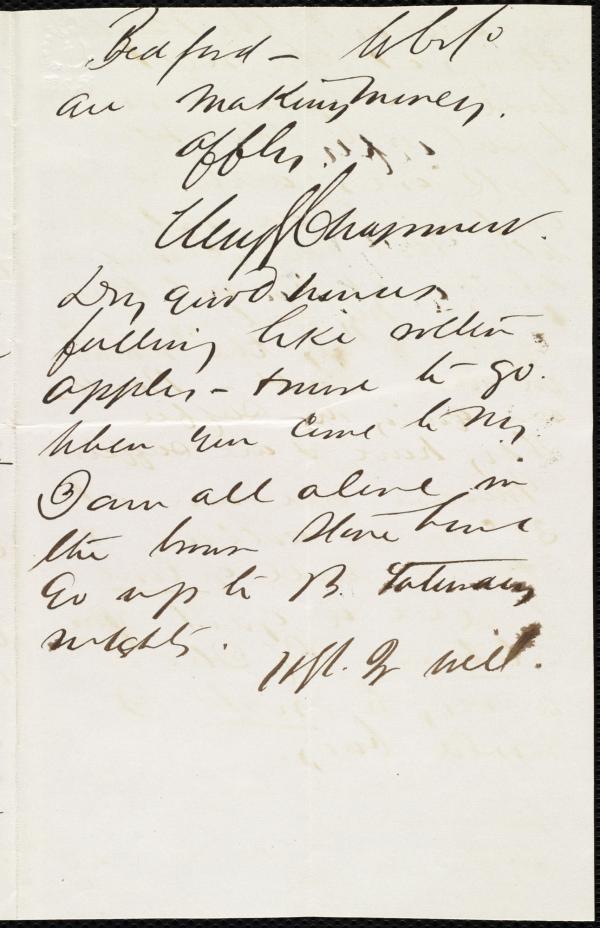 Bedford – Who's
are making money.
affly.
Henry G Chapman.
Dry good houses
falling like rotten
apples – & more to go.
When you come to NY
I am all alone in
the brown stone house
Go up to B. Saturday
nights. well.